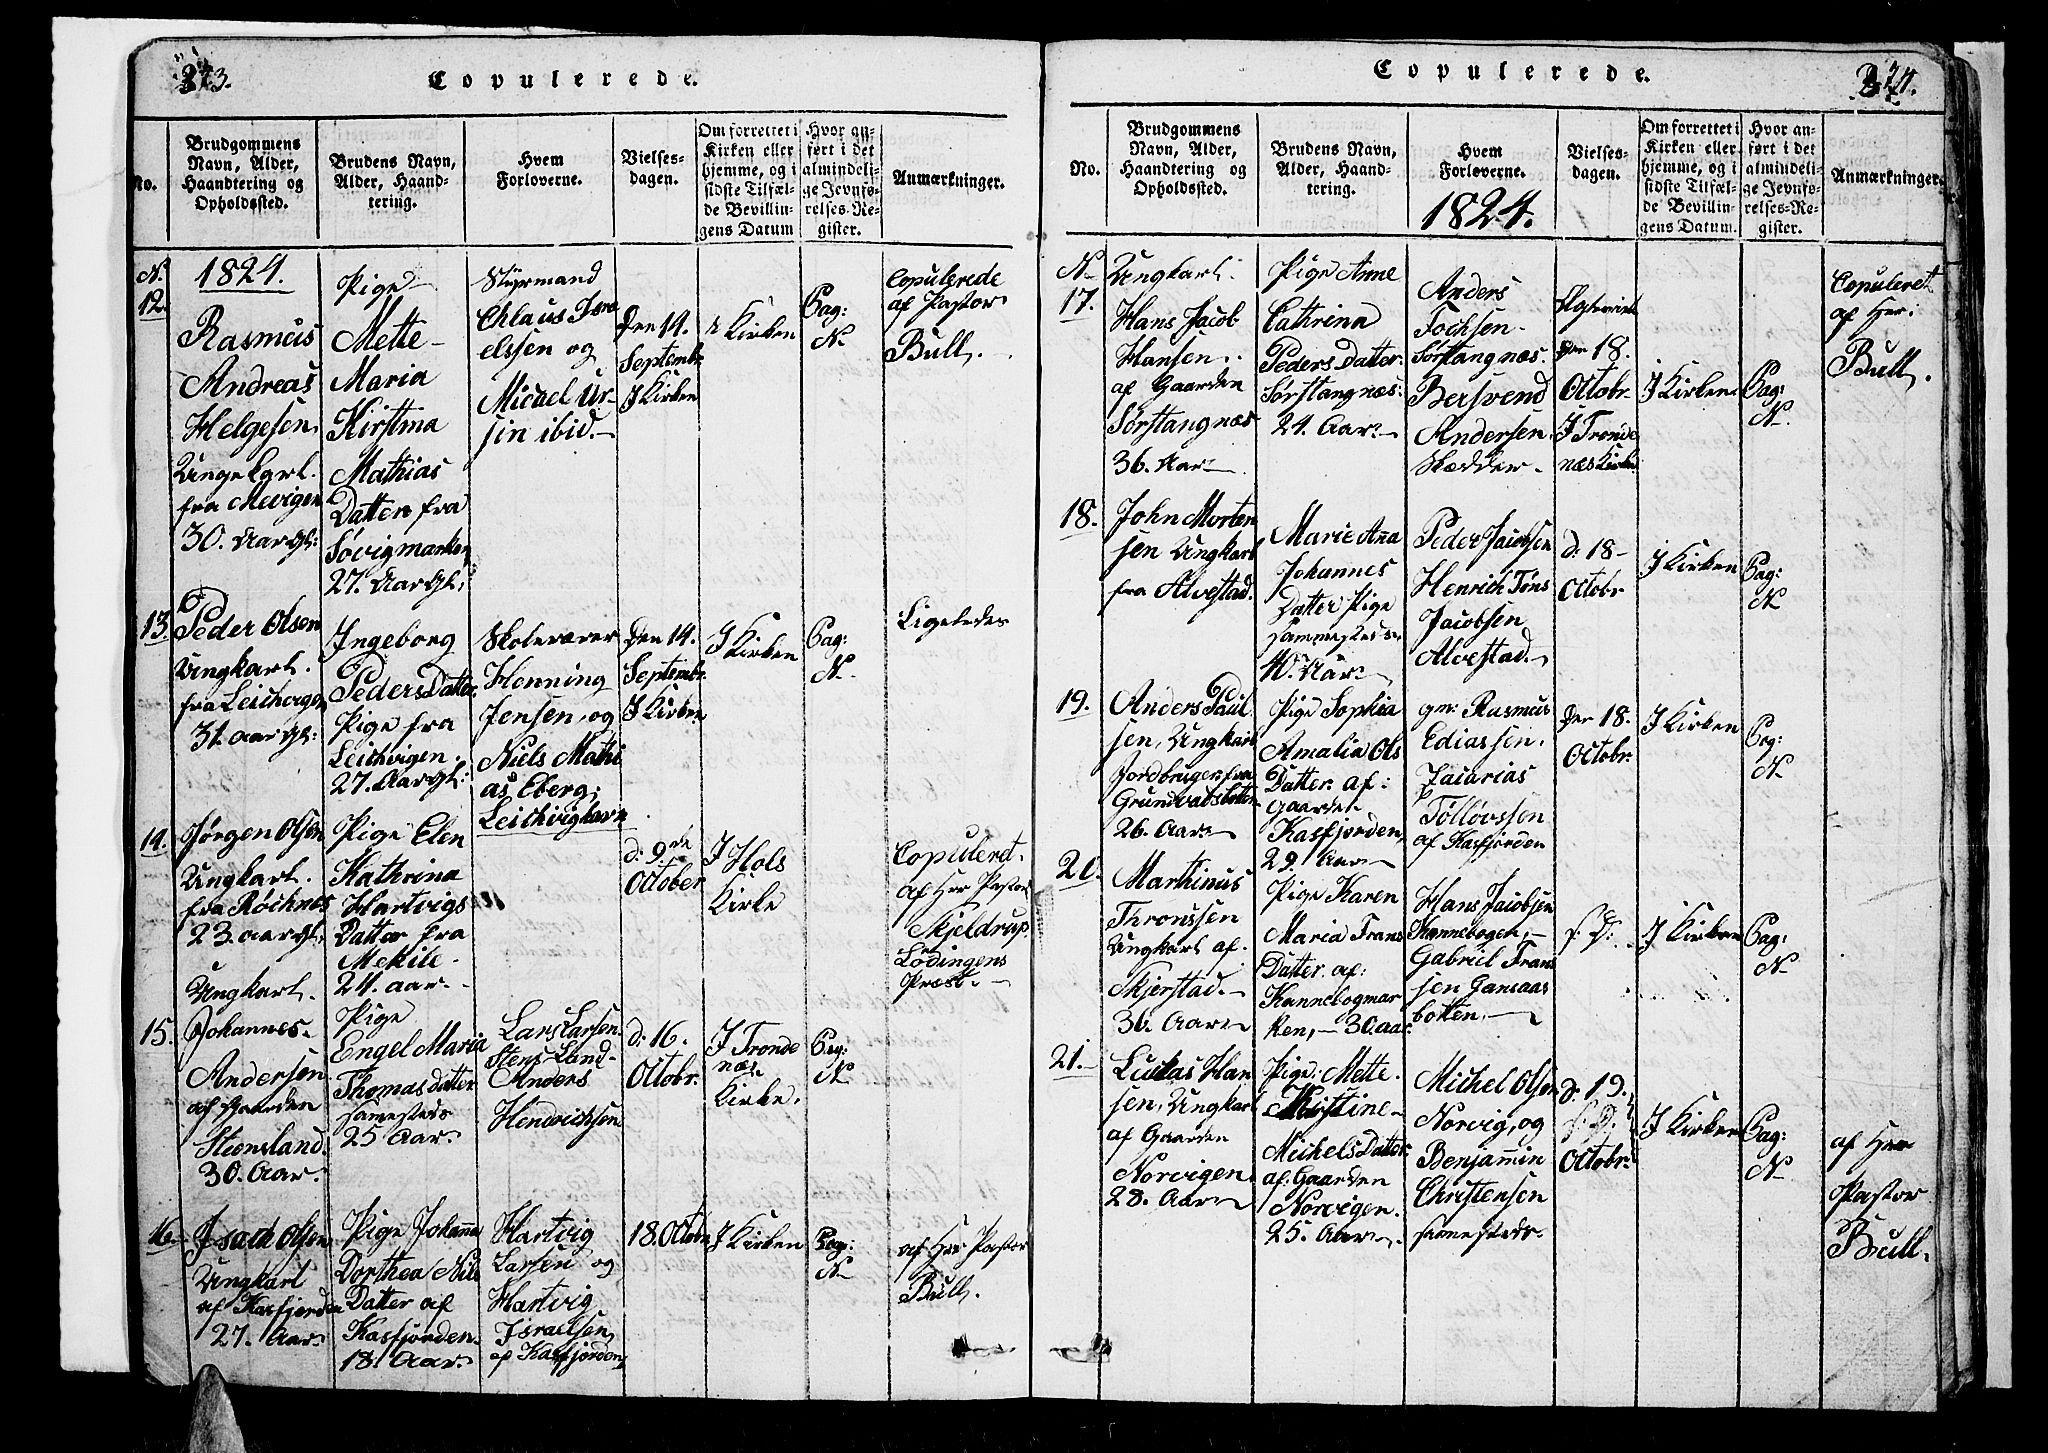 273.
Copulerede.
No.
Brudgommens
Navn, Alder,
Haandtering og
Opholdssted.
Brudens Navn,
Alder, Haand-
tering.
Hvem
Forloverne.
Vielses-
dagen.
Om forrettet i
Kirken eller
hjemme, og i
sidste Tilfæl-
de Bevillin-
gens Datum
Hvor an-
ført i det
almindeli-
ge Jevnfø-
relses-Re-
gister.
Anmærkninger.
N.
12.
1824.
Rasmus
Andreas
Helgesen
Ungekarl.
fra Mevigen
30. Aar Gl:
Pige
Mette
Maria
Kirstina
Mathias
Datter fra
Søvigmarken
27. Aar Gl:
Styrmand
Chlaus Isra
elssen og
Micael Ur-
sin ibid.
Den 14.
Septembr
I Kirken
I Kirken
Pag:
N
Copulerede
af Pastor
Bull.
13.
Peder Olsen
Ungkarl.
fra Leichvigen
31. aar gl:
Ingeborg
Peders Datter
Pige fra
Leichvigen.
27. Aar Gl:
Skolelærer
Henning
Jensen, og
Niels Mathi
as Eberg,
Leichvig
Den 14.
Septembr.
I Kirken
I Kirken
Pag:
N.
Ligeledes
14.
Jørgen Olsen
Ungkarl.
fra Røchnes
23. aar gl.
Pige Elen
Kathrina
Hartvigs
Datter fra
24. aar.
d: 9de
October
I Hols
Kirke
Copuleret
af Her Pastor
Skjeldrup
Lødingens
Præst.
15.
Ungkarl.
Johannes
Andersen
af Gaarden
Steensland
30. Aar.
Pige
Engel Maria
Thomas datter
sammesteds
25 Aar.
Lars Larsen
Stensland
Anders
Hendrichsen
d: 16.
Octobr.
I Tronde
næs
Kirke.
Pag:
N
16.
Isach Olsen
Ungkarl
af Kasfjorden
27. Aar
Pige Johanna
Dorthea Nils
Datter af
Kasfjorden
18. Aar.
Hartvig
Larsen og
Hartvig
Israelsen
af Kasfjorden
18. Octobr
I Kirken
Pag:
N
af Her Pastor
Bull.
274.
Copulerede.
No.
Brudgommens
Navn, Alder,
Haandtering og
Opholdssted.
Brudens Navn,
Alder, Haand-
tering.
Hvem
Forloverne.
1824.
Vielses-
dagen.
Om forrettet i
Kirken eller
hjemme, og i
sidste Tilfæl-
de Bevillin-
gens Datum.
Hvor an-
ført i det
almindeli-
ge Jevnfø-
relses-Re-
gister.
Anmærkninger.
N
17.
Ungkarl.
Hans Jacob
Hansen.
af Gaarden
Sørstangnæs
36. Aar
Pige Anne
Cathrina
Peders Datter.
Sørstangnæs:
24. Aar
Anders
Tochsen
Sørstangnæs.
Bersvend
Andersen
den 18.
Octobr
I Tronde
næs Kirke
I Kirken
Pag:
N.
Copuleret
af Her:
Bull.
18.
John Morten
sen Ungkarl
fra Alvestad.
Marie Ana
Johannes
Datter Pige
sammesteds
40. Aar
Peder Jacobsen
Henrich Tøns
Jacobsen
Alvestad.
d: 18
Octobr
I Kirken
Pag:
N
19.
Anders Paul
sen, Ungkarl
Jordbruger fra
Grundvadsbotten
26. Aar
Pige Sophia
Amalia Ols
Datter. af:
Gaarden
Kasfjorden
29. Aar
gm: Rasmus
Ediassen.
Zacarias
Tølløvssen
af Kasfjorden
Den 18.
Octobr.
I Kirken
Pag:
N
20.
Marthinus
Thronssen
Ungkarl af.
Skjerstad.
36. Aar
Pige Karen
Maria Frans
Datter. af:
Kannebogmar
ken, 30 aar.
Hans Jacobsen
Kannebogen,
Gabriel Frans
sen Gansaas
botten,
s: D:
I Kirken
Pag:
N
21.
Lucas Han
sen, Ungkarl
af Gaarden
Norvigen
28. Aar
Pige: Mette
Kirstine
Michels Datter
af Gaarden
Norvigen.
25. Aar
Michel Olsen
Norvig, og
Benjamin
Christensen
sammesteds.
d: 19.
s: D.
Octobr.
I Kirken
Pag:
N
af Her
Pastor
Bull.